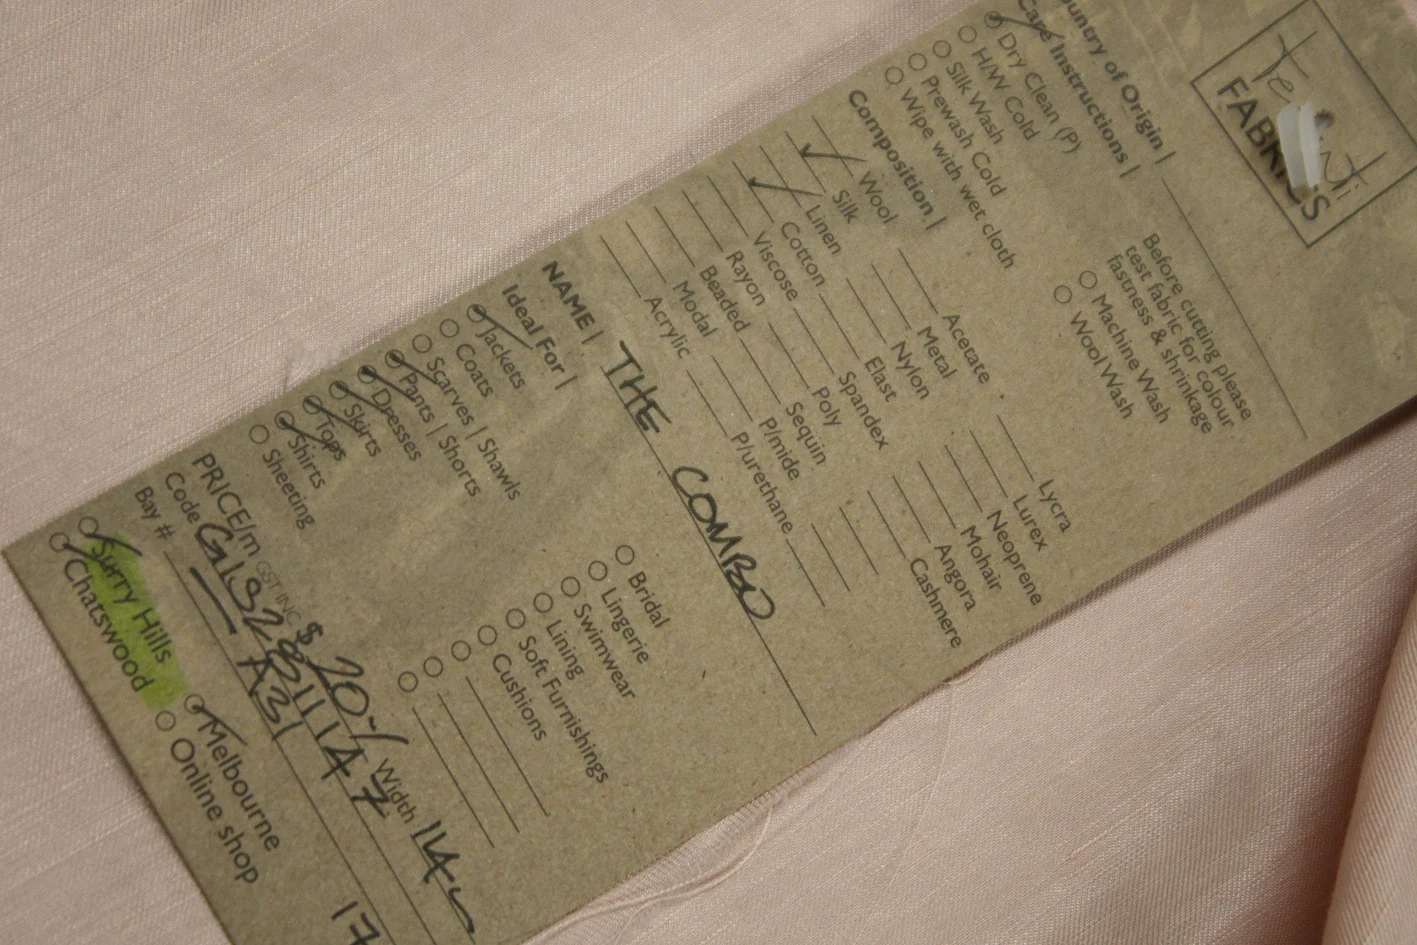 FABRICS
Country of Origin |
Care Instructions |
Dry Clean (P)
H/W Cold
Silk Wash
Prewash Cold
Wipe with wet cloth
Before cutting please
test fabric for colour
fastness & shrinkage
Machine Wash
Wool Wash
Composition |
Wool
Silk
Linen
Cotton
Viscose
Rayon
Beaded
Modal
Acrylic
Acetate
Metal
Nylon
Elast
Spandex
Poly
Sequin
P/mide
P/urethane
Lycra
Lurex
Neoprene
Mohair
Angora
Cashmere
NAME | THE COMBO
Ideal For |
Jackets
Coats
Scarves | Shawls
Pants | Shorts
Dresses
Skirts
Tops
Shirts
Sheeting
Bridal
Lingerie
Swimwear
Lining
Soft Furnishings
Cushions
PRICE/m GST INC $20-/ Width 114
Code
Bay # A31
Surry Hills
Chatswood
Melbourne
Online shop
17